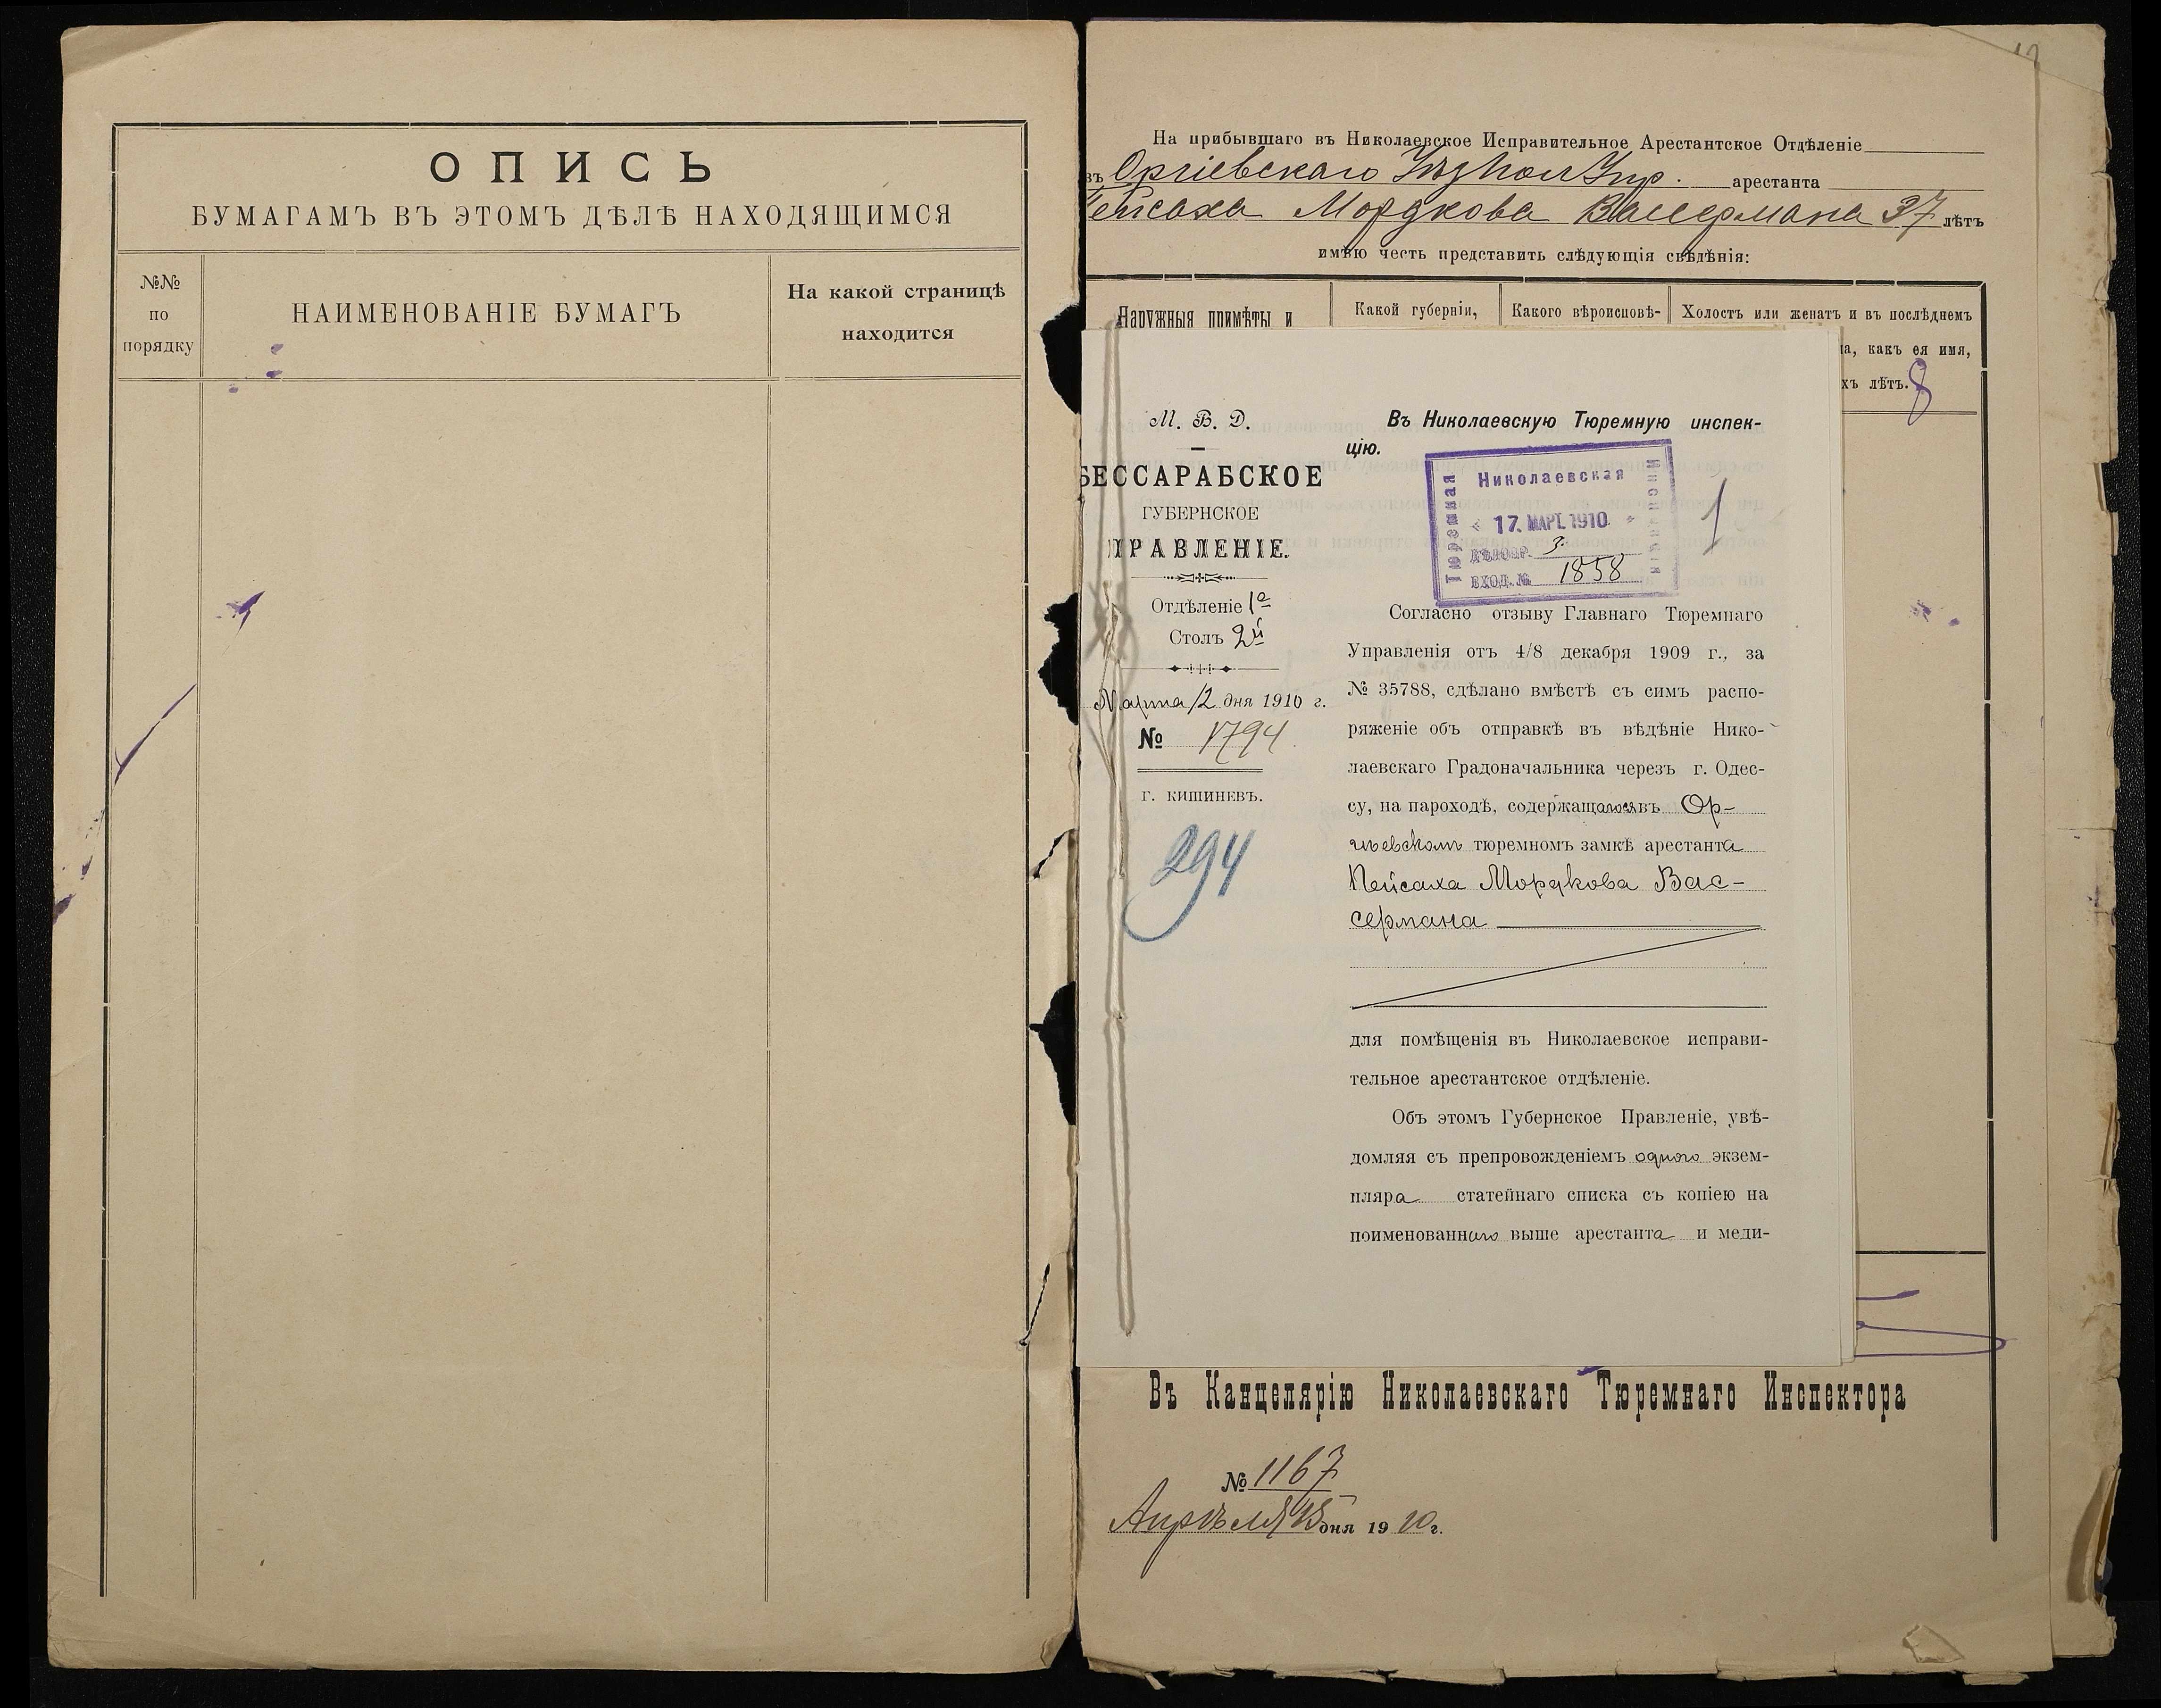 ОПИСЬ
БУМАГАМЪ ВЪ ЭТОМЪ ДѢЛѢ НАХОДЯЩИМСЯ
№№
по
порядку
НАИМЕНОВАНІЕ БУМАГЪ
На какой страницѣ
находится
На прибывшаго въ Николаевское Исправительное Арестантское Отдѣленіе
въ Оргіевскаго арестанта
Пейсаха Мордкова Вассермана 37 лѣтъ
имѣю честь представить слѣдующія свѣдѣнія:
Наружныя примѣты и
Какой губерніи,
Какого вѣроисповѣ-
Холостъ или женатъ и въ послѣднемъ
на, какъ ея имя,
хъ лѣтъ.
8
М. В. Д.
БЕССАРАБСКОЕ
ГУБЕРНСКОЕ
ПРАВЛЕНІЕ.
Отдѣленіе 1е
Столъ 2й
Марта 12 дня 1910 г.
№ 1794
г. КИШИНЕВЪ.
294
Въ Николаевскую Тюремную инспек-
цію.
Николаевская
Тюремная
Инспекція
17. МАРТ. 1910
ДѢЛОПР. 3.
ВХОД. № 1858
1
Согласно отзыву Главнаго Тюремнаго
Управленія отъ 4/8 декабря 1909 г., за
№ 35788, сдѣлано вмѣстѣ съ симъ распо-
ряженіе объ отправкѣ въ вѣдѣніе Нико-
лаевскаго Градоначальника черезъ г. Одес-
су, на пароходѣ, содержащагося въ Ор-
гѣевскомъ тюремномъ замкѣ арестанта
Пейсаха Мордкова Вас-
сермана
для помѣщенія въ Николаевское исправи-
тельное арестантское отдѣленіе.
Объ этомъ Губернское Правленіе, увѣ-
домляя съ препровожденіемъ одного экзем-
пляра статейнаго списка съ копіею на
поименованнаго выше арестанта и меди-
Въ Канцелярію Николаевскаго Тюремнаго Инспектора
№ 1167
Апрѣля 15 дня 1910 г.